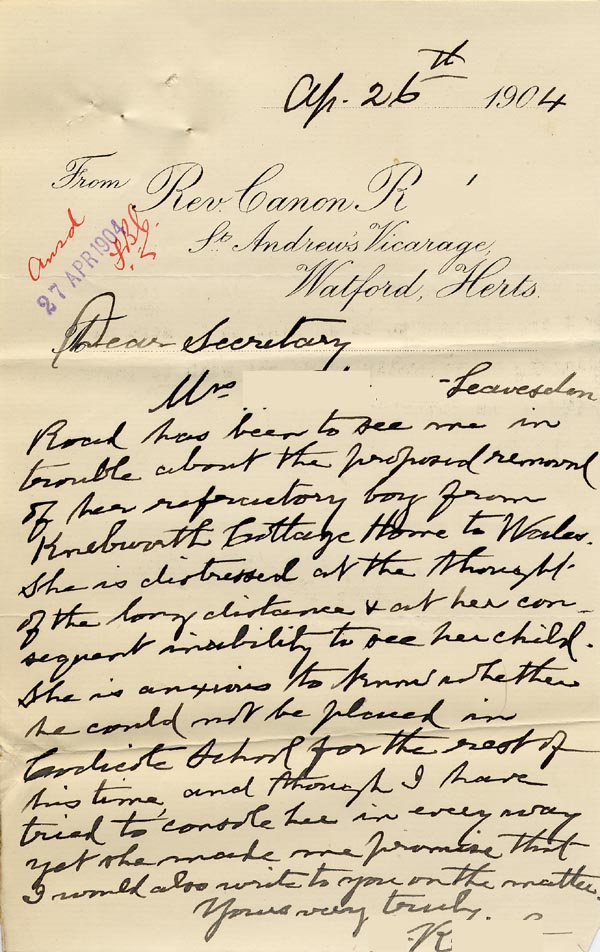 Ap. 26th 1904
From Rev. Canon R
St. Andrew's Vicarage,
Watford, Herts.
ansd
27 APR 1904
Dear Secretary
Mrs - Leavesden
Road has been to see me in
trouble about the proposed removal
of her refractory boy from
Knebworth Cottage Home to Wales.
She is distressed at the thought
of the long distance & at her con-
sequent inability to see her child.
She is anxious to know whether
he could not be placed in
Codicote School for the rest of
his time, and though I have
tried to console her in every way
yet she made me promise that
I would also write to you on the matter.
Yours very truly.
R